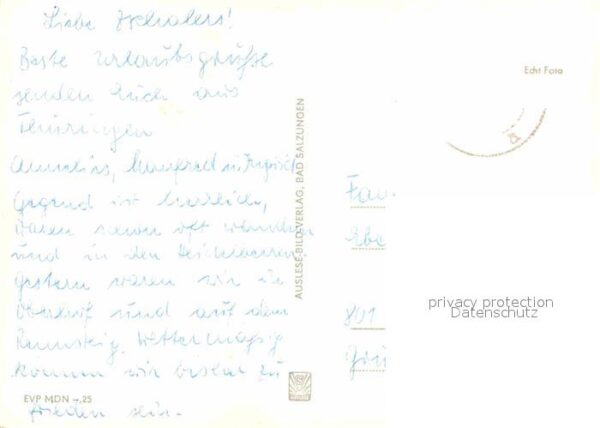 Liebe Zschalers!
Beste Urlaubsgrüße
senden Euch aus
Thüringen
Annelies, Manfred u. Ingrid
Gegend ist herrlich,
waren schon oft wandern
und in den
Gestern waren wir in
Oberhof und auf dem
Rennsteig. Wettermäßig
können wir zu
frieden sein.
EVP MDN -,25
AUSLESE-BILD-VERLAG, BAD SALZUNGEN
Echt Foto
Fam
801
privacy protection
Datenschutz